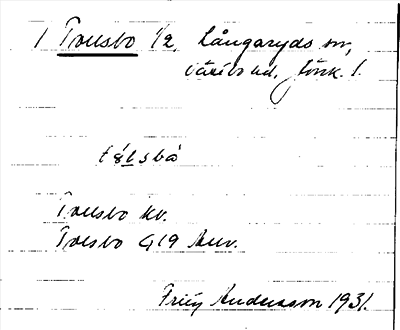 1 Tolsbo 1/2, Långaryds sn,
Västbo hd, Jönk. l.
tálsbá
Tolsbo kv.
Tolsbo G 19 Anv.
Frity Andersson 1931.